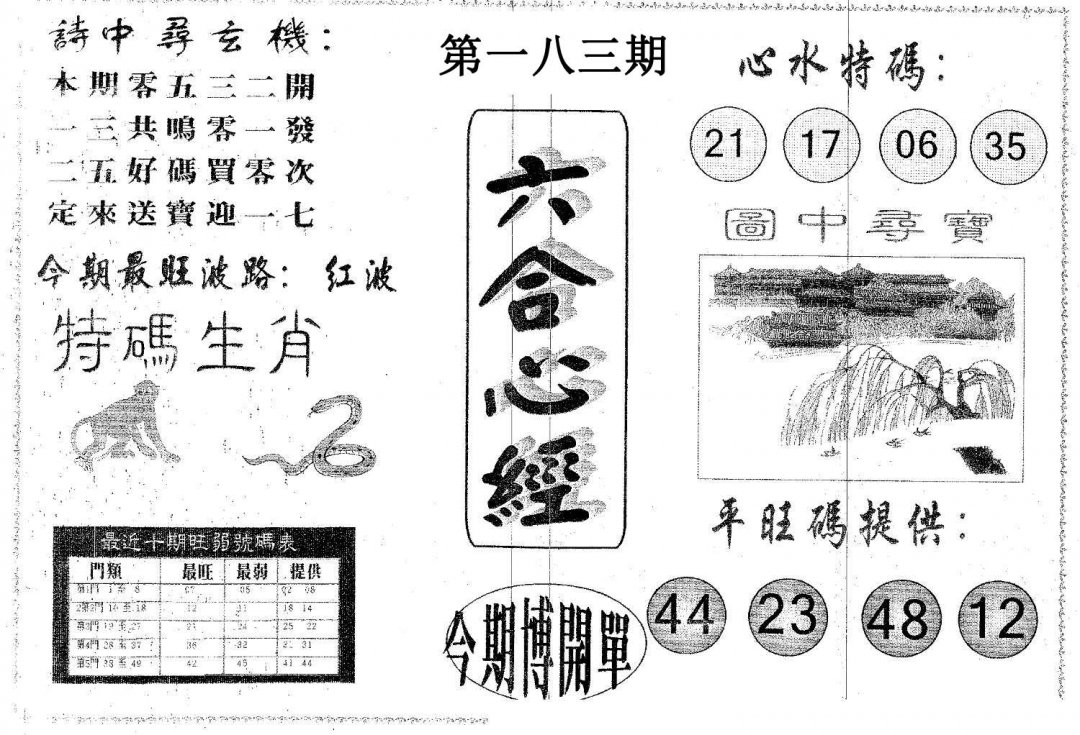 詩中尋玄機：
本期零五三二開
一三共鳴零一發
二五好碼買零次
定來送寶迎一七
今期最旺波路：红波
特碼生肖
最近十期旺弱號碼表
門類 最旺 最弱 提供
第1門 1 至 8 07 05 02 08
12 11 18 14
第3門 19 至 27 21 24 25 22
第4門 28 至 37 36 32 31
第5門 38 至 49 42 45 41 44
第一八三期
六合心經
今期博開單
心水特碼：
21 17 06 35
圖中尋寶
平旺碼提供：
44 23 48 12